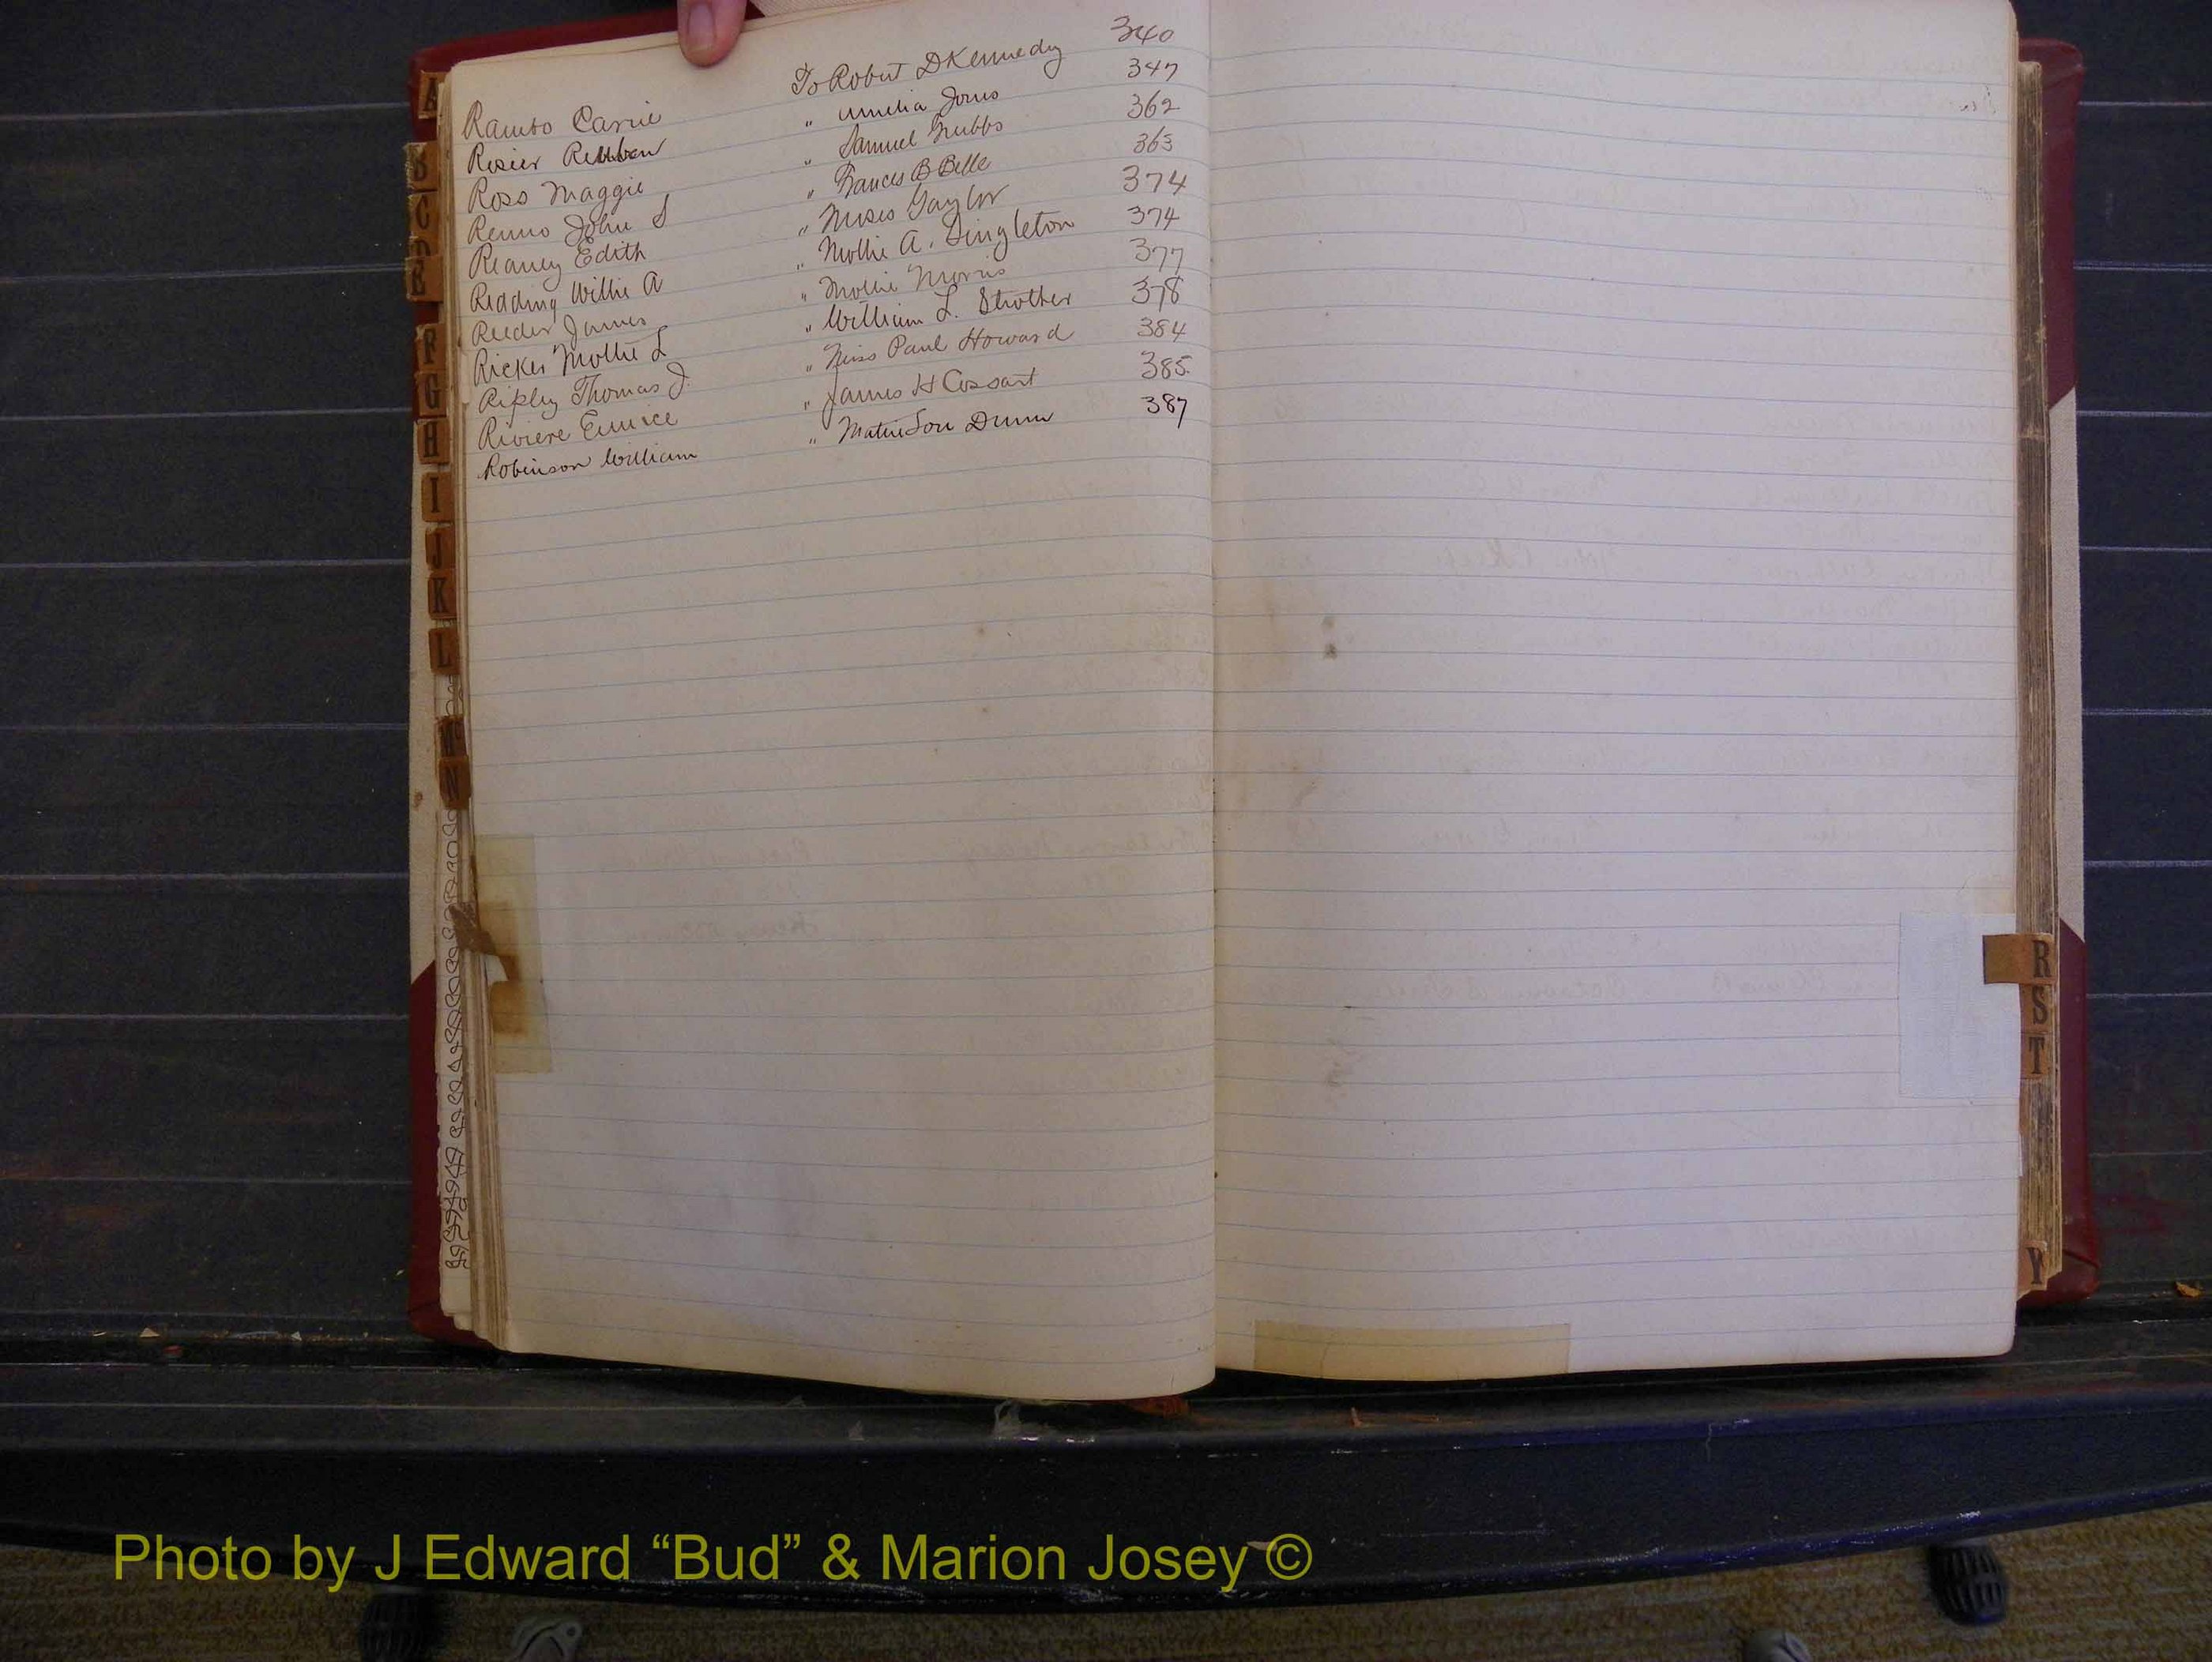 Rambo Carrie To Robert D Kennedy 340
Rosier Reubben " Amelia Jones 347
Ross Maggie " Samuel Grubbs 362
Renno John S " Frances B Belle 363
Reaney Edith " Moses Gaylor 374
Redding Willie A " Mollie A. Singleton 374
Reeder James " Mollie Morris 377
Ricker Mollie L " William L. Strother 378
Ripley Thomas J. " Miss Paul Howard 384
Riviere Eunice " James H Cossart 385
Robinson William " Dunn 387
A
B
C
D
E
F
G
H
I
J
K
L
Mc
N
R
S
T
Y
Photo by J Edward “Bud” & Marion Josey ©